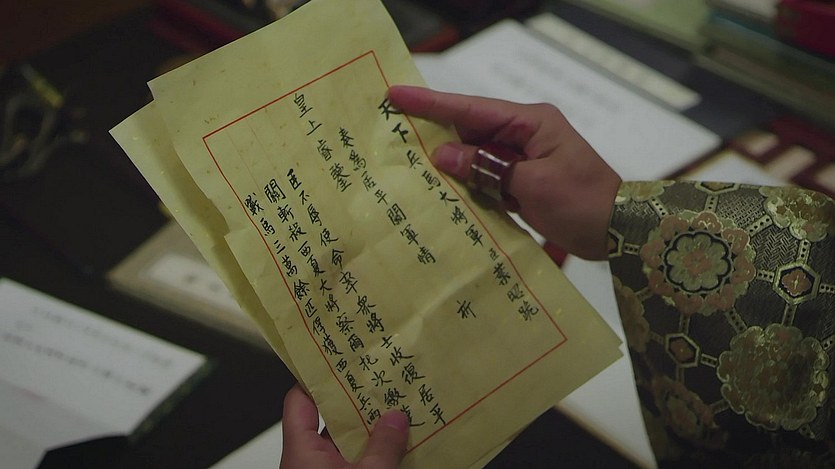 天下兵馬大將軍臣葉昭
奏為居平關軍情
祈
皇上睿鑒
臣不辱使命率眾將士收復居平
關斬殺西夏大將察爾托次繳
戰馬三萬餘匹俘獲西夏兵兩